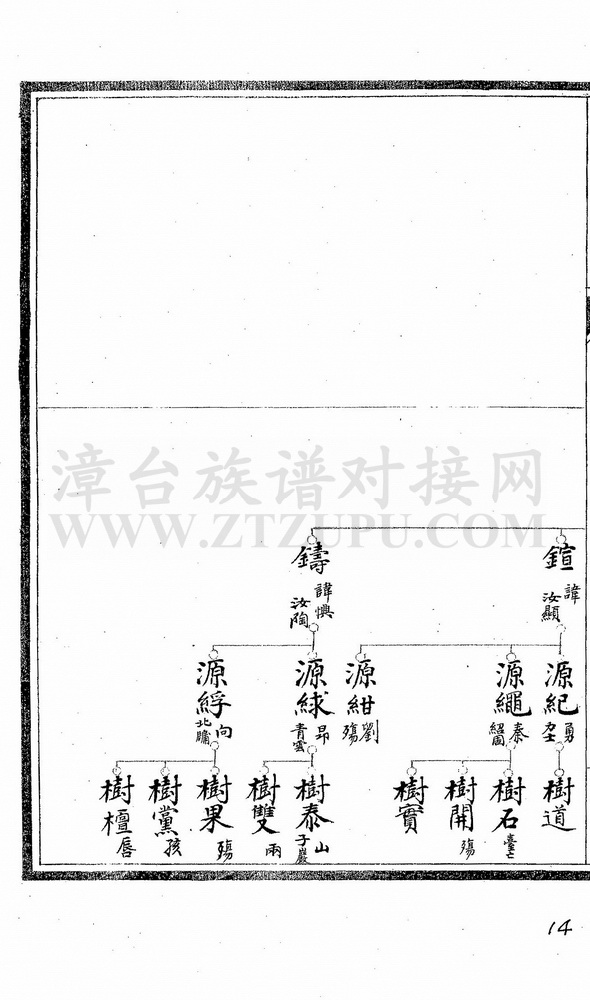 漳台族谱对接网
WWW.ZTZUPU.COM
鍹
諱
汝顯
鑄
諱懊
汝陶
源紀
勇
源繩
泰
紹園
源紺
劉
殤
源絿
昂
青雲
源綒
向
北牖
樹道
樹石
臺亡
樹開
殤
樹實
樹泰
山
子嚴
樹雙
兩
樹果
殤
樹黨
孩
樹檀
唇
14